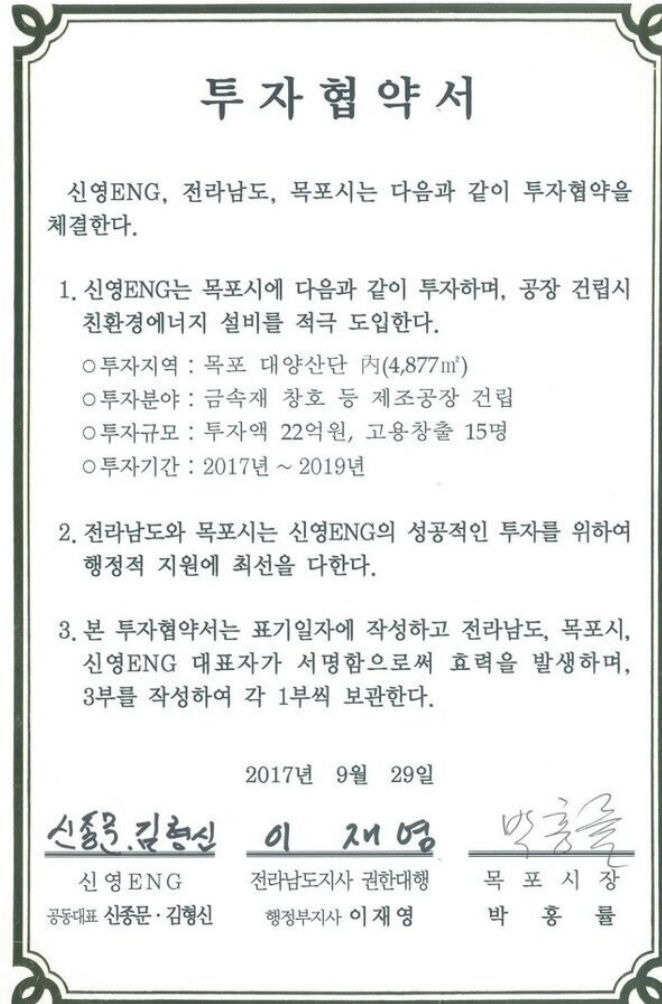 투자협약서
신영ENG, 전라남도, 목포시는 다음과 같이 투자협약을
체결한다.
1. 신영ENG는 목포시에 다음과 같이 투자하며, 공장 건립시
친환경에너지 설비를 적극 도입한다.
○투자지역 : 목포 대양산단 內(4,877㎡)
○투자분야 : 금속재 창호 등 제조공장 건립
○투자규모 : 투자액 22억원, 고용창출 15명
○투자기간 : 2017년 ~ 2019년
2. 전라남도와 목포시는 신영ENG의 성공적인 투자를 위하여
행정적 지원에 최선을 다한다.
3. 본 투자협약서는 표기일자에 작성하고 전라남도, 목포시,
신영ENG 대표자가 서명함으로써 효력을 발생하며,
3부를 작성하여 각 1부씩 보관한다.
2017년 9월 29일
신종문.김형신 이 재 영 박홍률
신영ENG 전라남도지사 권한대행 목 포 시 장
공동대표 신종문·김형신 행정부지사 이재영 박 홍 률